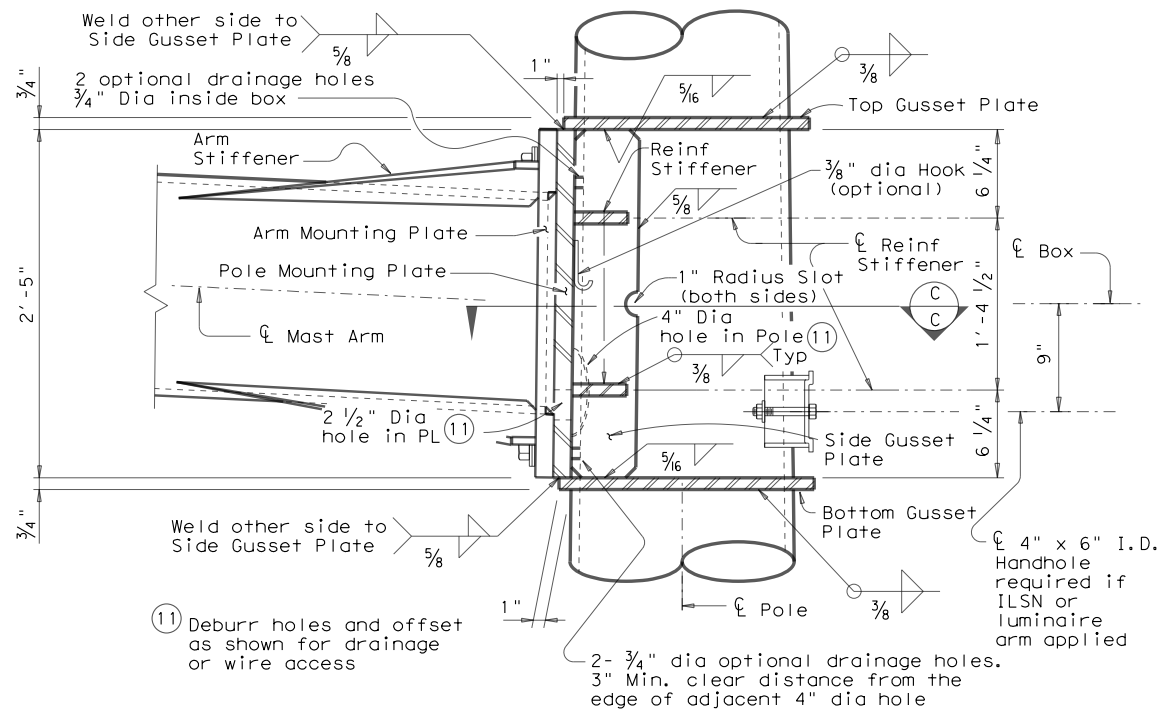 Weld other side to
Side Gusset Plate
5/8
3/4"
2 optional drainage holes
3/4" Dia inside box
1"
5/16
3/8
Top Gusset Plate
Arm
Stiffener
Reinf
Stiffener
3/8" dia Hook
(optional)
6 1/4"
5/8
Arm Mounting Plate
℄ Reinf
Stiffener
℄ Box
Pole Mounting Plate
1" Radius Slot
(both sides)
C
C
2'-5"
1'-4 1/2"
℄ Mast Arm
4" Dia
hole in Pole 11
Typ
3/8
9"
2 1/2" Dia
hole in PL 11
Side Gusset
Plate
6 1/4"
5/16
3/4"
Weld other side to
Side Gusset Plate
5/8
Bottom Gusset
Plate
℄ 4" x 6" I.D.
Handhole
required if
ILSN or
luminaire
arm applied
1"
℄ Pole
3/8
11 Deburr holes and offset
as shown for drainage
or wire access
2- 3/4" dia optional drainage holes.
3" Min. clear distance from the
edge of adjacent 4" dia hole